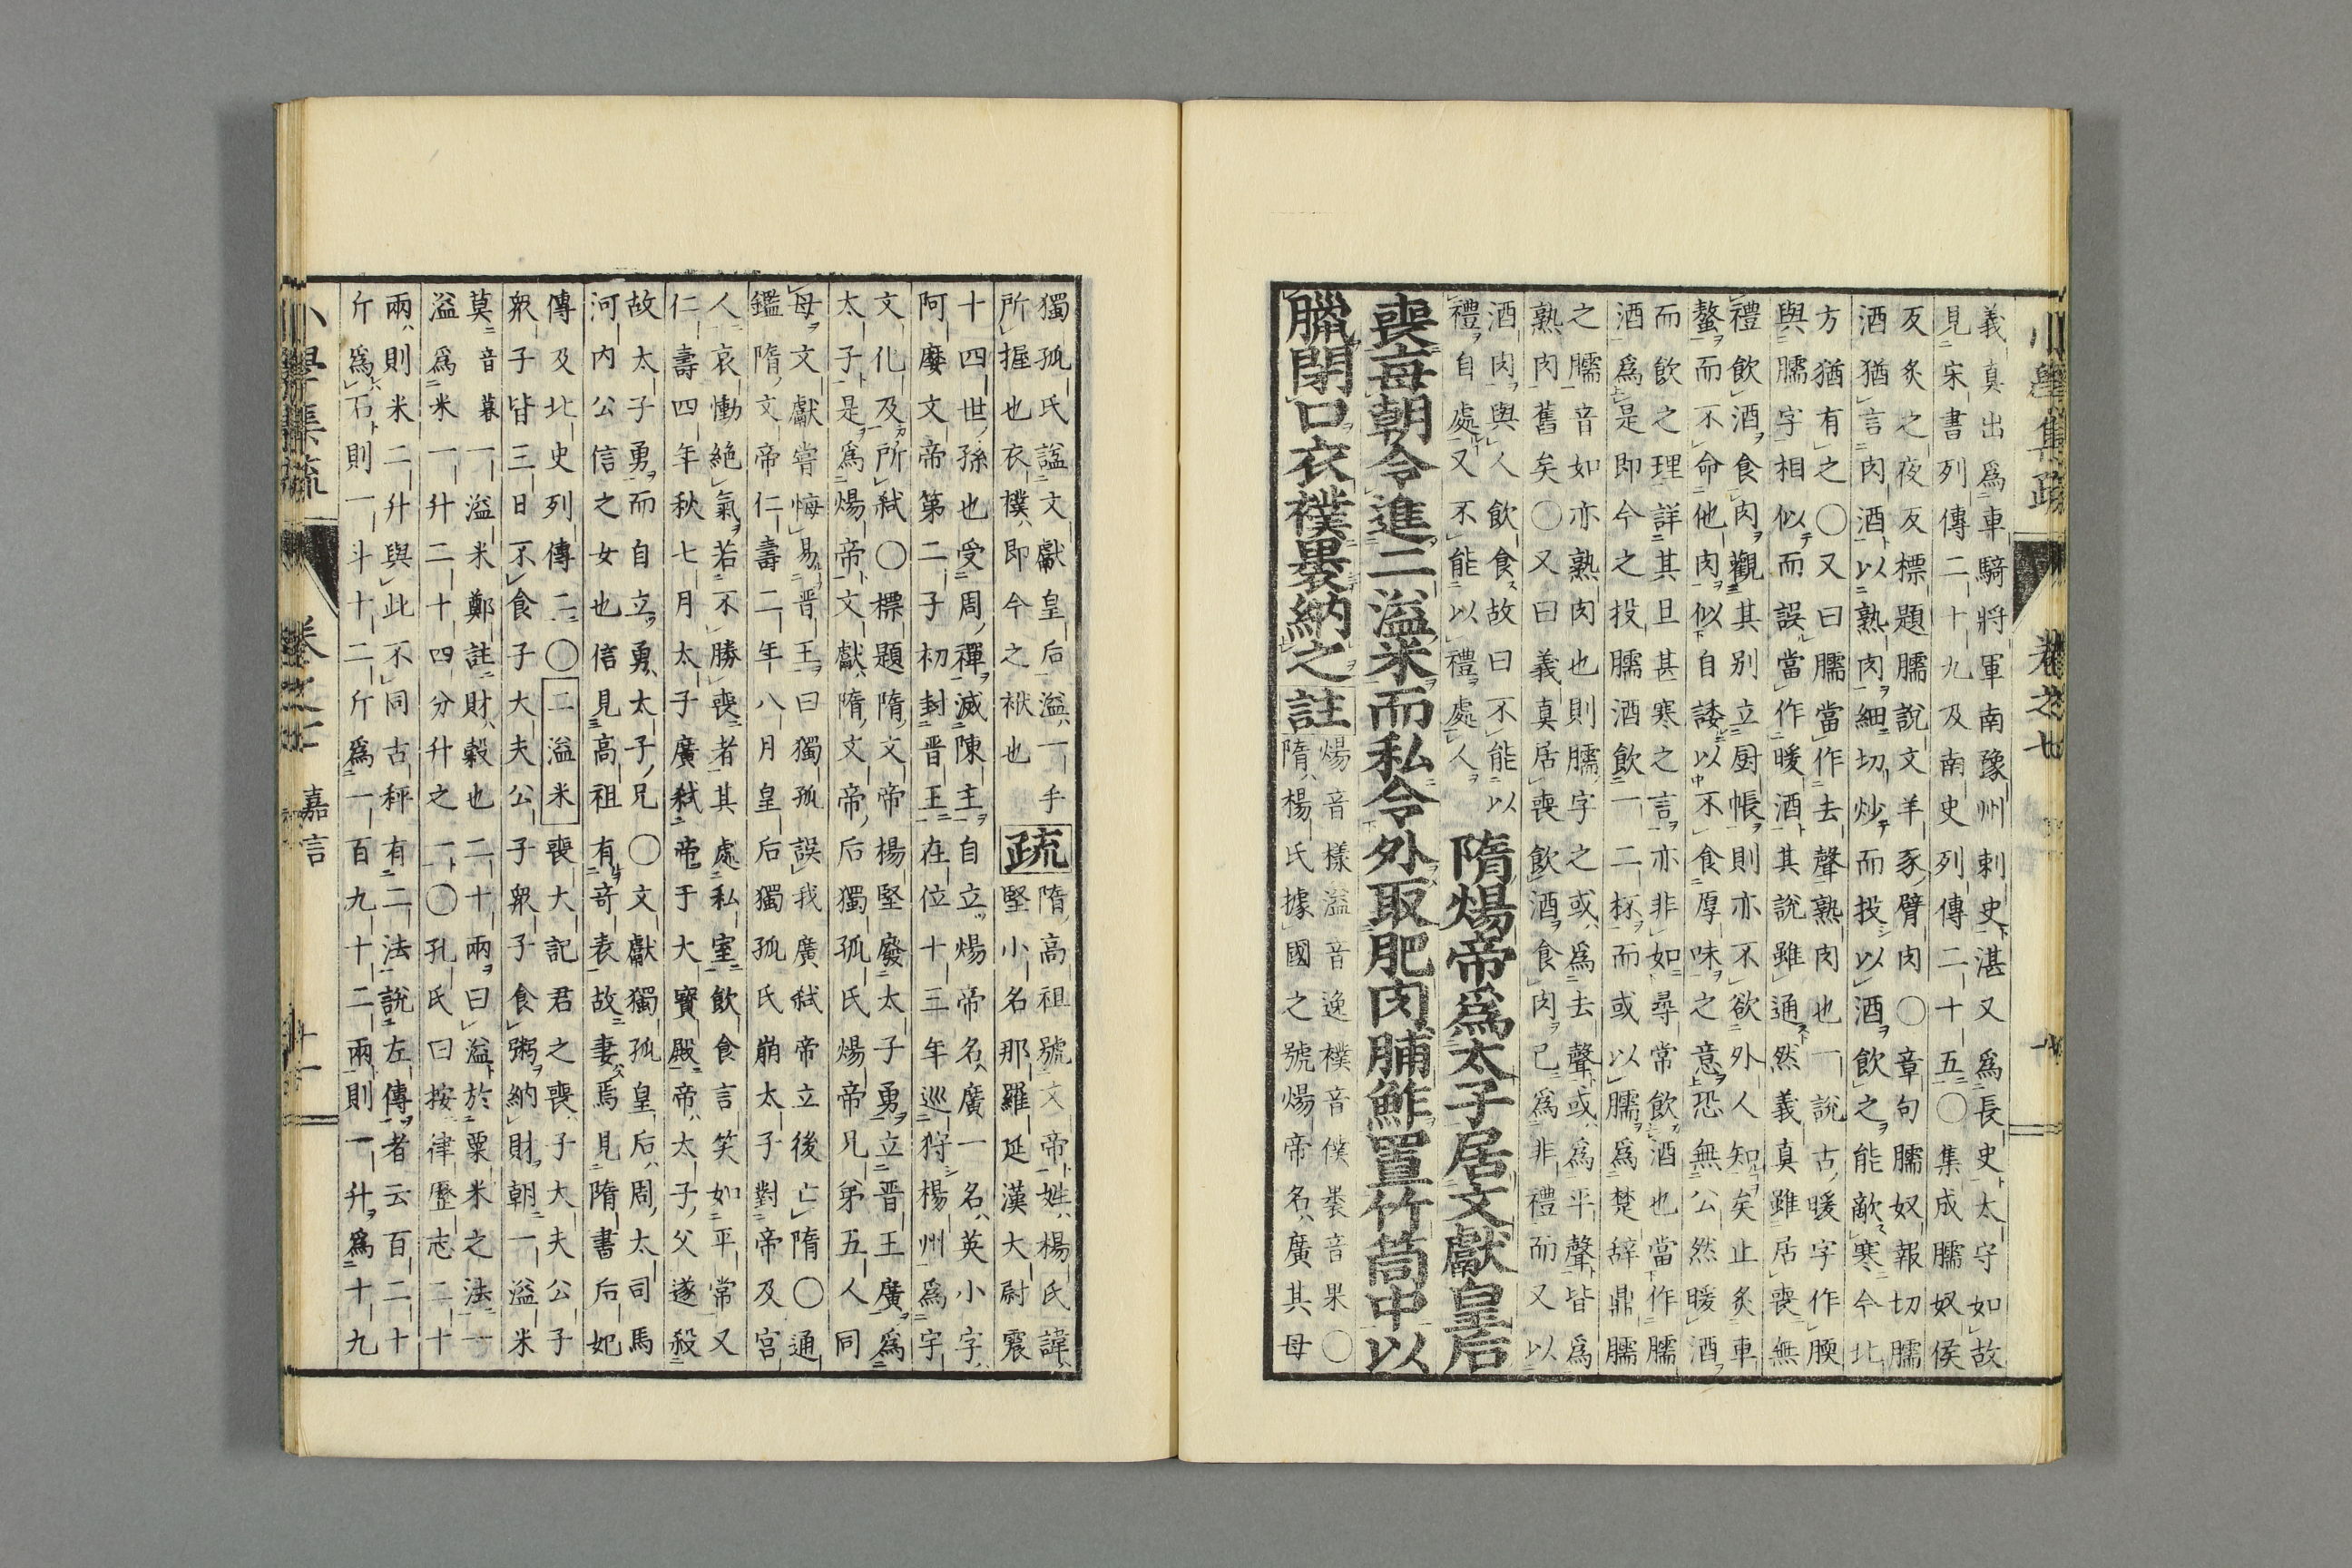 義真出爲車騎將軍南豫州刺史湛又爲長史太守如故
見宋書列傳二十九及南史列傳二十五〇集成臑奴侯
反炙之夜反標題臑說文羊豕臂肉〇章句臑奴報切臑
酒猶言肉酒以熟肉細切炒而投以酒飲之能敵寒今北
方猶有之〇又曰臑當作去聲熟肉也一說古暖字作腝
與臑字相似而誤當作暖酒其說雖通然義真雖居喪無
禮飲酒食肉觀其別立厨帳則亦不欲外人知矣止炙車
螯而不命他肉似自諉以不食厚味之意恐無公然暖酒
而飲之理詳其且甚寒之言亦非如尋常飲酒也當作臑
酒爲是即今之投臑酒飲一二杯而或以臑爲楚辞鼎臑
之臑音如亦熟肉也則臑字之或爲去聲或爲平聲皆爲
熟肉舊矣〇又曰義真居喪飲酒食肉已爲非禮而又以
酒肉與人飲食故曰不能以
禮自處又不能以禮處人
隋煬帝爲太子居文獻皇后
喪每朝令進二溢米而私令外取肥肉脯鮓置竹筒中以
臘閉口衣襆褁納之註
煬音樣溢音逸襆音僕褁音果〇
隋楊氏據國之號煬帝名廣其母
獨孤氏諡文獻皇后溢一手
所握也衣襆即今之袱也
疏
隋高祖號文帝姓楊氏諱
堅小名那羅延漢大尉震
十四世孫也受周禪滅陳主自立煬帝名廣一名英小字
阿𡡉文帝第二子初封晋王在位十三年巡狩楊州爲宇
文化及所弑〇標題隋文帝楊堅廢太子勇立晋王廣爲
太子是爲煬帝文獻隋文帝后獨孤氏煬帝兄弟五人同
母文獻嘗悔易晋王曰獨孤誤我廣弑帝立後亡隋〇通
鑑隋文帝仁壽二年八月皇后獨孤氏崩太子對帝及宮
人哀慟絕氣若不勝喪者其處私室飲食言笑如平常又
仁壽四年秋七月太子廣弑帝于大寶殿帝太子父遂殺
故太子勇而自立勇太子兄〇文獻獨孤皇后周太司馬
河內公信之女也信見高祖有竒表故妻焉見隋書后妃
傳及北史列傳二〇二溢米喪大記君之喪子大夫公子
衆子皆三日不食子大夫公子衆子食粥納財朝一溢米
莫音暮一溢米鄭註財穀也二十兩曰溢於粟米之法一
溢爲米一升二十四分升之一〇孔氏曰按律歷志二十
兩則米二升與此不同古秤有二法說左傳者云百二十
斤爲石則一斗十二斤爲一百九十二兩則一升爲十九
小學集疏 卷之七 嘉言 十一